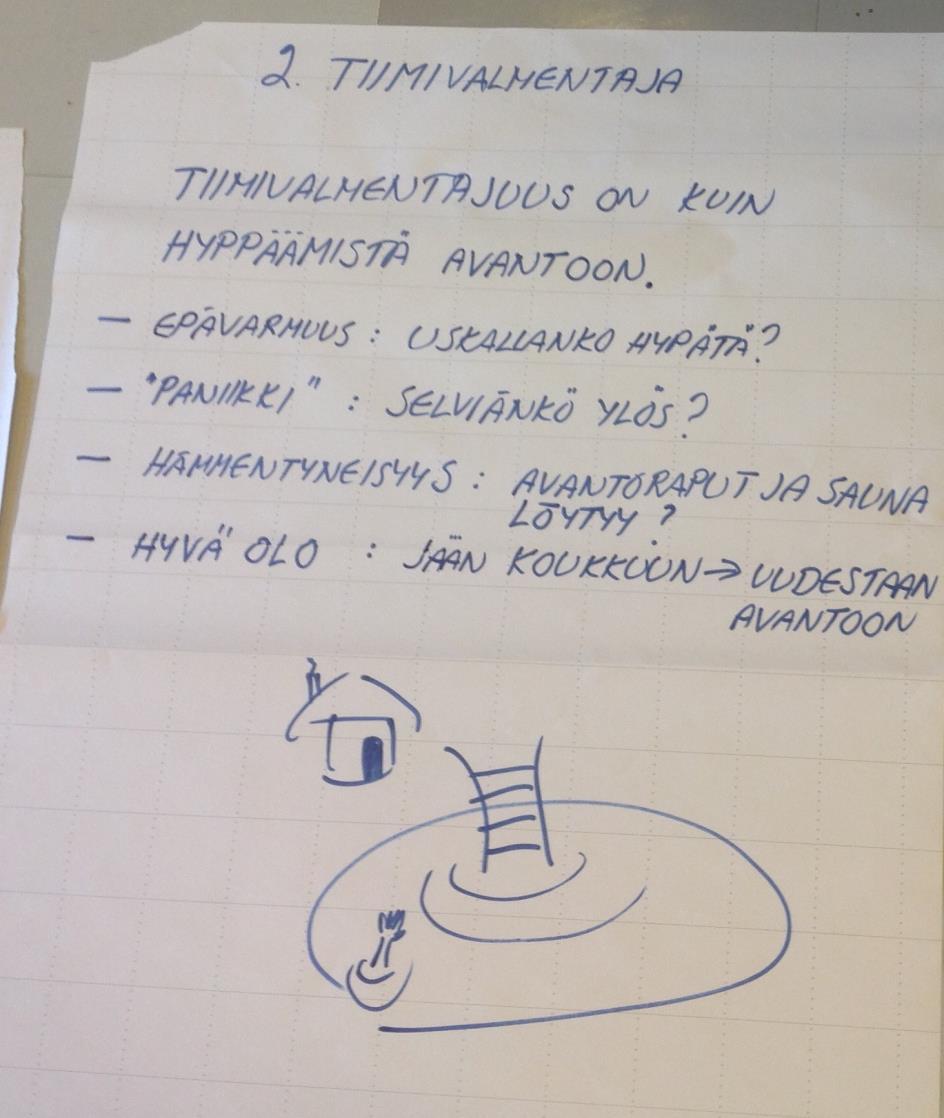 2. TIIMIVALMENTAJA
TIIMIVALMENTAJUUS ON KUIN
HYPPÄÄMISTÄ AVANTOON.
– EPÄVARMUUS : USKALLANKO HYPÄTÄ?
– "PANIIKKI" : SELVIÄNKÖ YLÖS?
– HÄMMENTYNEISYYS : AVANTORAPUT JA SAUNA
LÖYTYY?
– HYVÄ OLO : JÄÄN KOUKKUUN → UUDESTAAN
AVANTOON